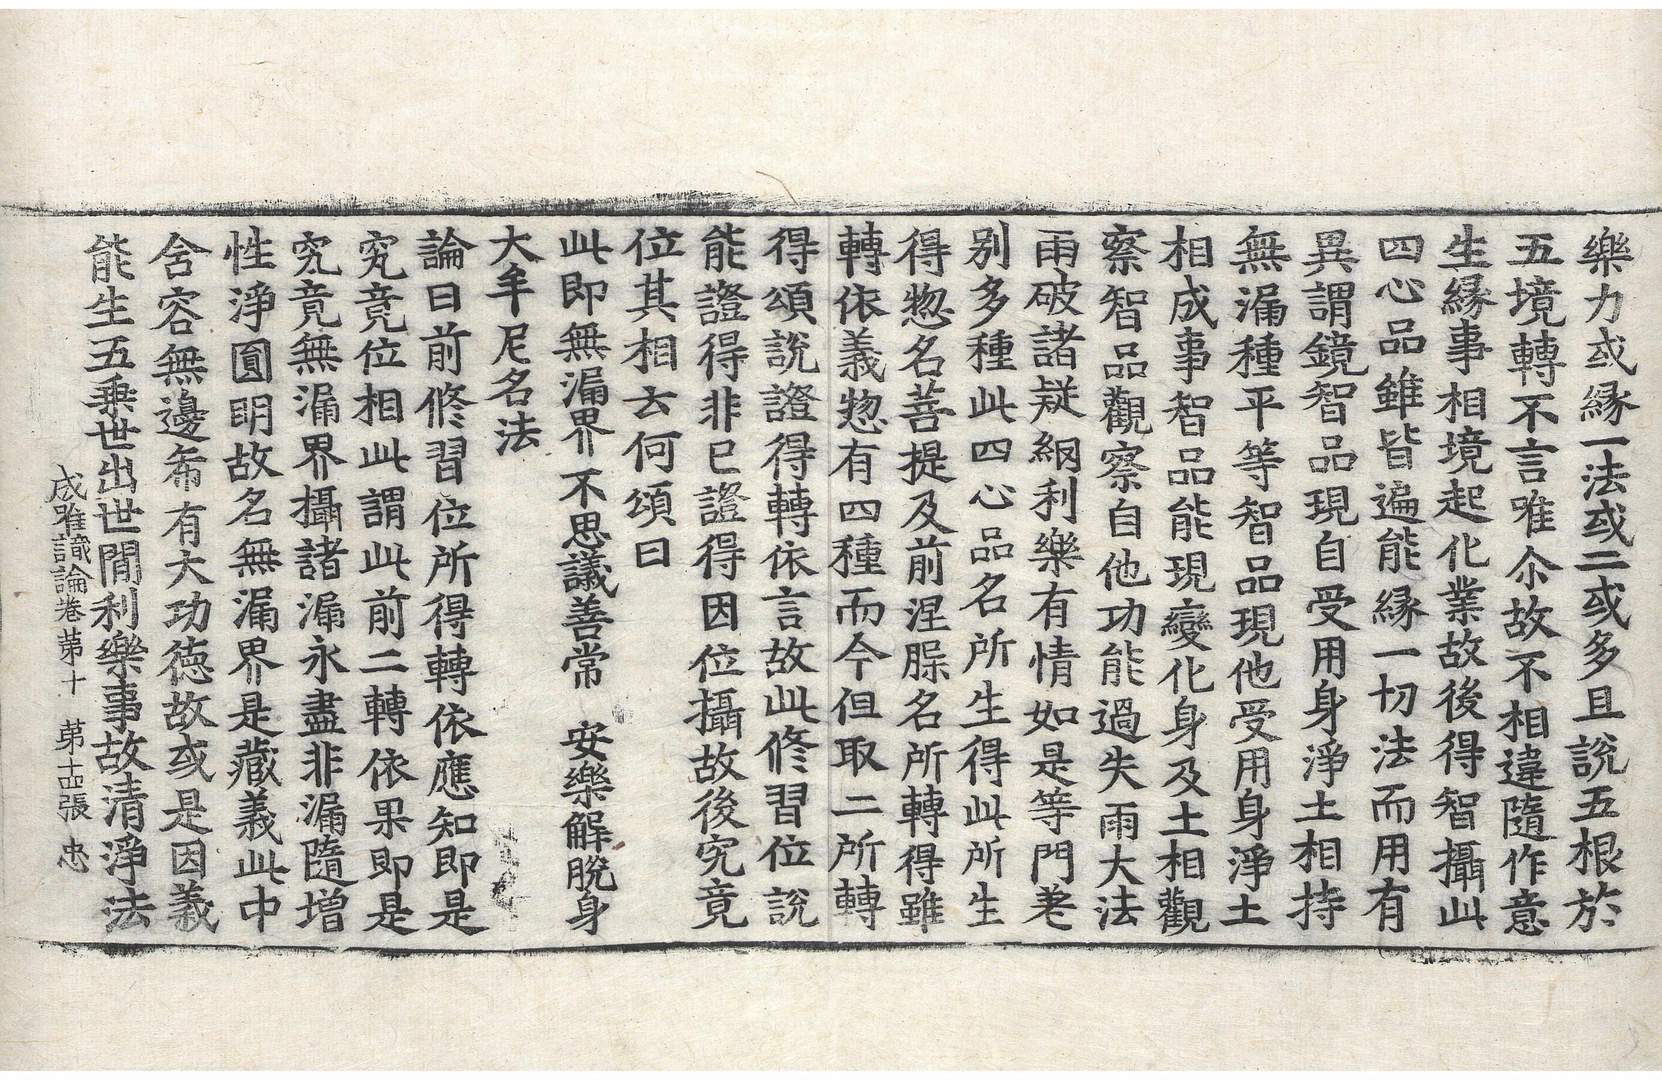 樂力或緣一法或二或多且說五根於
五境轉不言唯尒故不相違隨作意
生緣事相境起化業故後得智攝此
四心品雖皆遍能緣一切法而用有
異謂鏡智品現自受用身淨土相持
無漏種平等智品現他受用身淨土
相成事智品能現變化身及土相觀
察智品觀察自他功能過失雨大法
雨破諸疑網利樂有情如是等門差
別多種此四心品名所生得此所生
得惣名菩提及前涅槃名所轉得雖
轉依義惣有四種而今但取二所轉
得頌說證得轉依言故此修習位說
能證得非已證得因位攝故後究竟
位其相云何頌曰
此即無漏界不思議善常　安樂解脫身
大牟尼名法
論曰前修習位所得轉依應知即是
究竟位相此謂此前二轉依果即是
究竟無漏界攝諸漏永盡非漏隨增
性淨圓明故名無漏界是藏義此中
含容無邊希有大功德故或是因義
能生五乘世出世間利樂事故清淨法
成唯識論卷第十　第十四張　忠